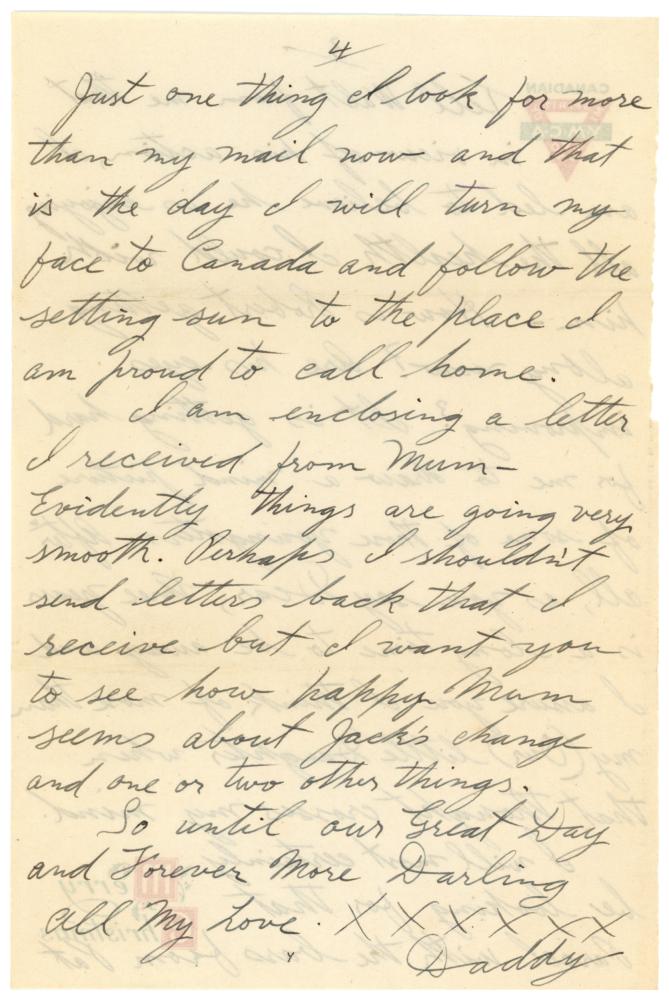 4
Just one thing I look for more
than my mail now and that
is the day I will turn my
face to Canada and follow the
setting sun to the place I
am proud to call home.
I am enclosing a letter
I received from Mum-
Evidently things are going very
smooth. Perhaps I shouldn't
send letters back that I
receive but I want you
to see how happy Mum
seems about Jack's change
and one or two other things.
So until our Great Day
and Forever More Darling
All My Love. X X X X X X
Daddy